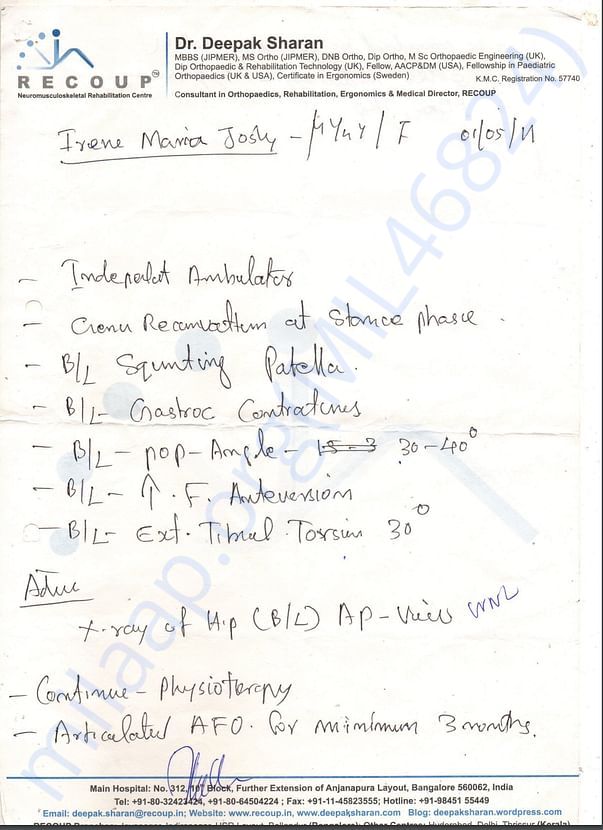 RECOUP™
Neuromusculoskeletal Rehabilitation Centre
Dr. Deepak Sharan
MBBS (JIPMER), MS Ortho (JIPMER), DNB Ortho, Dip Ortho, M Sc Orthopaedic Engineering (UK),
Dip Orthopaedic & Rehabilitation Technology (UK), Fellow, AACP&DM (USA), Fellowship in Paediatric
Orthopaedics (UK & USA), Certificate in Ergonomics (Sweden)
K.M.C. Registration No. 57740
Consultant in Orthopaedics, Rehabilitation, Ergonomics & Medical Director, RECOUP
Irene Maria Joshy - / F 01/05/11
- Independent Ambulator
- Genu Recurvatum at Stance phase.
- B/L Squnting Patella.
- B/L- Gastroc Contractures
- B/L- pop-Angle - 30-40°
- B/L- ↑.F. Anteversion
- B/L- Ext. Tibial Torsion 30°
Advice
X-ray of Hip (B/L) AP-View WNL
- Continue - Physioterapy
- Articulated AFO for minimum 3 months.
Main Hospital: No. 312, 10th Block, Further Extension of Anjanapura Layout, Bangalore 560062, India
Tel: +91-80-32423424, +91-80-64504224 ; Fax: +91-11-45823555; Hotline: +91-98451 55449
Email: deepak.sharan@recoup.in; Website: www.recoup.in, www.deepaksharan.com Blog: deepaksharan.wordpress.com
milaap.org(MIL46824)